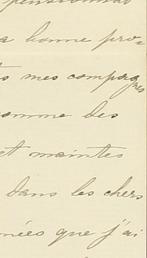 pensionnat
a bonne pro-
ts mes compagnes
omme des
et maintes
dans les chers
nées que j'ai